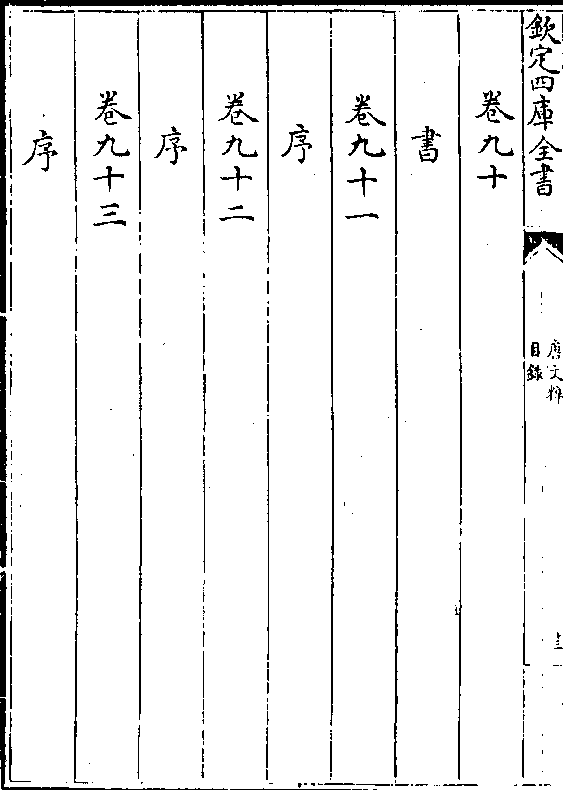 欽定四庫全書
唐文粹
目錄
卷九十
書
卷九十一
序
卷九十二
序
卷九十三
序